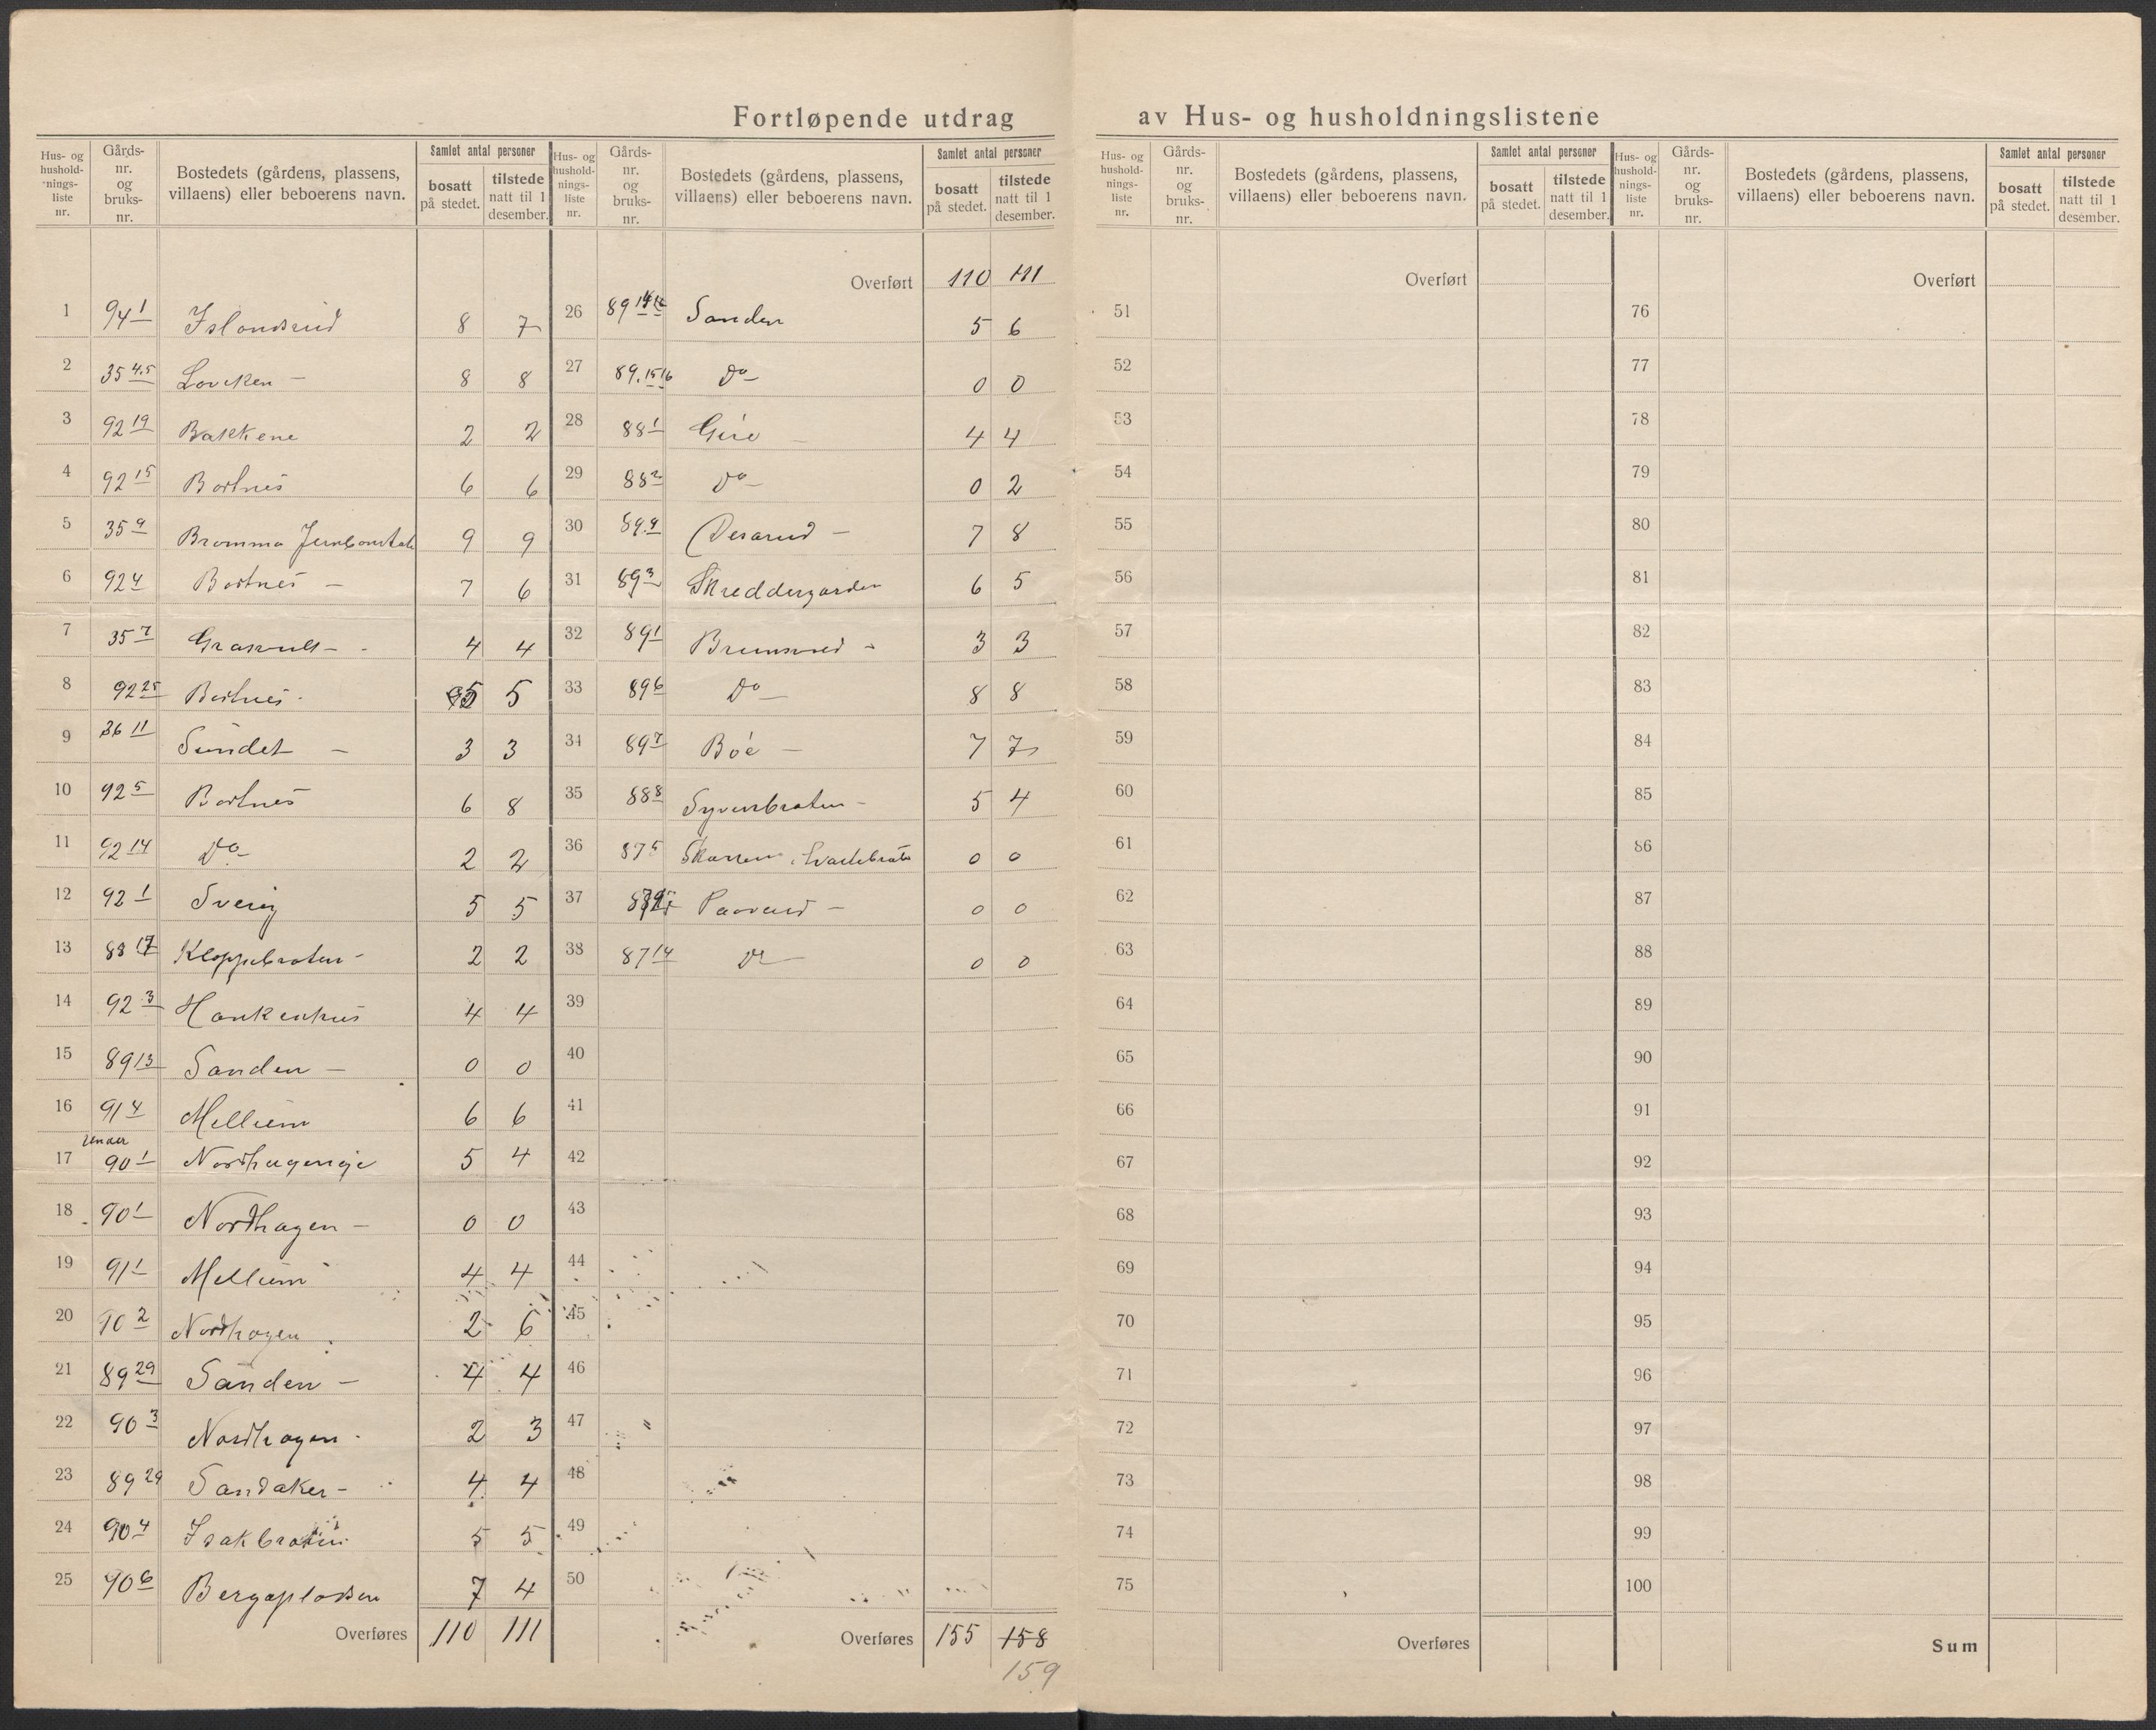 Fortløpende utdrag av Hus- og husholdningslistene
Hus- og hushold-nings-liste nr. | Gårds-nr. og bruks-nr. | Bostedets (gårdens, plassens, villaens) eller beboerens navn. | Samlet antal personer | bosatt på stedet. | tilstede natt til 1 desember.
1 94 1 Islandsrud 8 7
2 35 4.5 8 8
3 92 19 Bakkene 2 2
4 92 15 Bortnes 6 6
5 35 9 Bromma 9 9
6 92 4 Bortnes – 7 6
7 35 7 4 4
8 92 25 Bortnes 5 5
9 36 11 Sundet – 3 3
10 92 5 Bortnes 6 8
11 92 14 Do 2 2
12 92 1 Sverig 5 5
13 88 17 Kloppebraten – 2 2
14 92 3 Haukenhus 4 4
15 89 13 Sanden – 0 0
16 91 4 Mellium 6 6
17 under 90 1 Nordhageneje 5 4
18 90 1 Nordhagen – 0 0
19 91 1 Mellium 4 4
20 90 2 Nordhagen 2 6
21 89 29 Sanden – 4 4
22 90 3 Nordhagen 2 3
23 89 29 Sandaker – 4 4
24 90 4 Isakbraten 5 5
25 90 6 Bergaplassen 7 4
Overføres 110 111
Hus- og hushold-nings-liste nr. | Gårds-nr. og bruks-nr. | Bostedets (gårdens, plassens, villaens) eller beboerens navn. | Samlet antal personer | bosatt på stedet. | tilstede natt til 1 desember.
Overført 110 111
26 89 Sanden 5 6
27 89. 15 16 Do 0 0
28 88 1 4 4
29 88 2 Do 0 2
30 89. 7 8
31 89 3 Skreddergarden 6 5
32 89 1 3 3
33 89 6 Do 8 8
34 89 7 Bøe – 7 7
35 88 8 5 4
36 87 5 0 0
37 0 0
38 87 14 Do 0 0
39
40
41
42
43
44
45
46
47
48
49
50
Overføres 155 158
159
Hus- og hushold-nings-liste nr. | Gårds-nr. og bruks-nr. | Bostedets (gårdens, plassens, villaens) eller beboerens navn. | Samlet antal personer | bosatt på stedet. | tilstede natt til 1 desember.
Overført
51
52
53
54
55
56
57
58
59
60
61
62
63
64
65
66
67
68
69
70
71
72
73
74
75
Overføres
Hus- og hushold-nings-liste nr. | Gårds-nr. og bruks-nr. | Bostedets (gårdens, plassens, villaens) eller beboerens navn. | Samlet antal personer | bosatt på stedet. | tilstede natt til 1 desember.
Overført
76
77
78
79
80
81
82
83
84
85
86
87
88
89
90
91
92
93
94
95
96
97
98
99
100
Sum